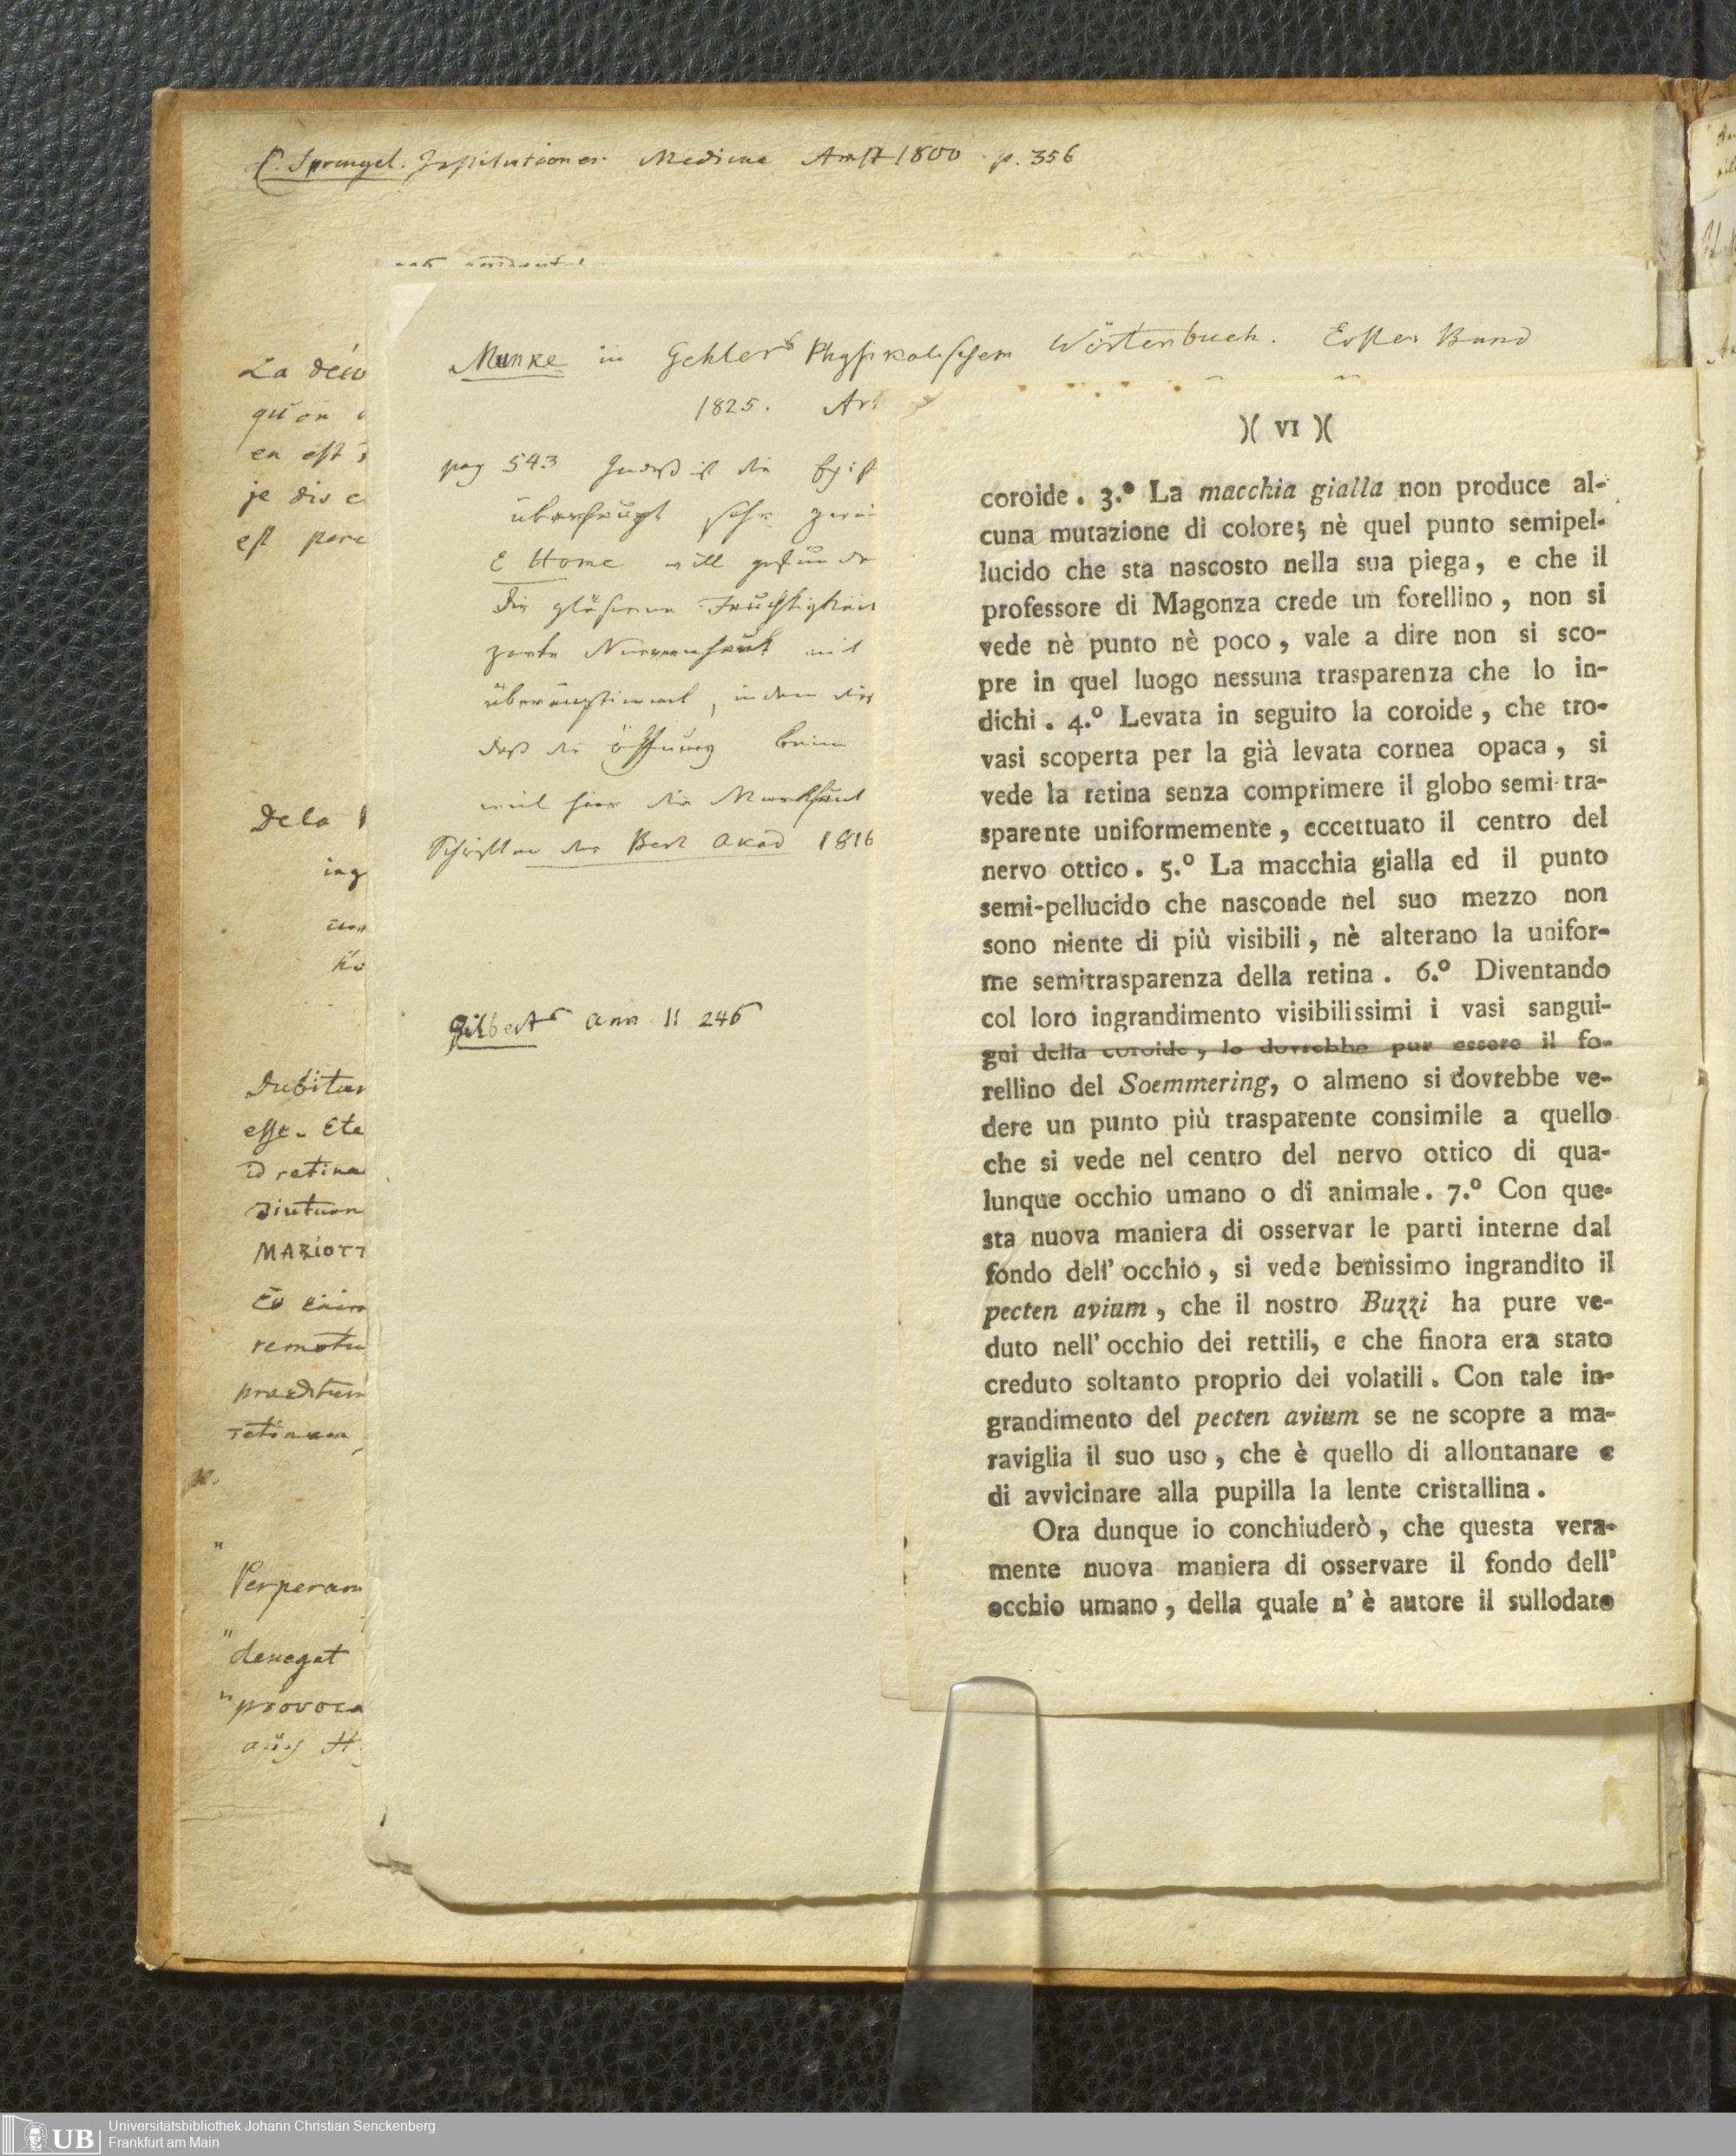 C. Sprengel. Institutiones Medicae Amst 1800 p. 356
La
qu'on
en est
je dis
est
De la
Dubitar
esse. Eta
id retina
MARIOTT
remotu
retinam
p.
"
Perperam
"denegat
"provoca
aus H
Munke in Gehlers Physikalischem Wörterbuch. Erster Band
1825. Ar
pag 543 Indeß ist die Exist
überhaupt sehr
E Home will gefunde
Die gläserne Feuchtigkeit
zarte Nervenhaut mit
übereinstimmt, indem
daß die Öffnung beim
weil hier die Markhaut
Schriften der Berl Akad 1816
Gilberts Ann II 246
)( VI )(
coroide. 3.º La macchia gialla non produce al-
cuna mutazione di colore; nè quel punto semipel-
lucido che sta nascosto nella sua piega, e che il
professore di Magonza crede un forellino, non si
vede nè punto nè poco, vale a dire non si sco-
pre in quel luogo nessuna trasparenza che lo in-
dichi. 4.º Levata in seguito la coroide, che tro-
vasi scoperta per la già levata cornea opaca, si
vede la retina senza comprimere il globo semi-tra-
sparente uniformemente, eccettuato il centro del
nervo ottico. 5.º La macchia gialla ed il punto
semi-pellucido che nasconde nel suo mezzo non
sono niente di più visibili, nè alterano la unifor-
me semitrasparenza della retina. 6.º Diventando
col loro ingrandimento visibilissimi i vasi sangui-
gni della coroide, lo dovrebbe pur essere il fo-
rellino del Soemmering, o almeno si dovrebbe ve-
dere un punto più trasparente consimile a quello
che si vede nel centro del nervo ottico di qua-
lunque occhio umano o di animale. 7.º Con que-
sta nuova maniera di osservar le parti interne dal
fondo dell' occhio, si vede benissimo ingrandito il
pecten avium, che il nostro Buzzi ha pure ve-
duto nell' occhio dei rettili, e che finora era stato
creduto soltanto proprio dei volatili. Con tale in-
grandimento del pecten avium se ne scopre a ma-
raviglia il suo uso, che è quello di allontanare e
di avvicinare alla pupilla la lente cristallina.
Ora dunque io conchiuderò, che questa vera-
mente nuova maniera di osservare il fondo dell'
occhio umano, della quale n' è autore il sullodato
UB
Universitätsbibliothek Johann Christian Senckenberg
Frankfurt am Main